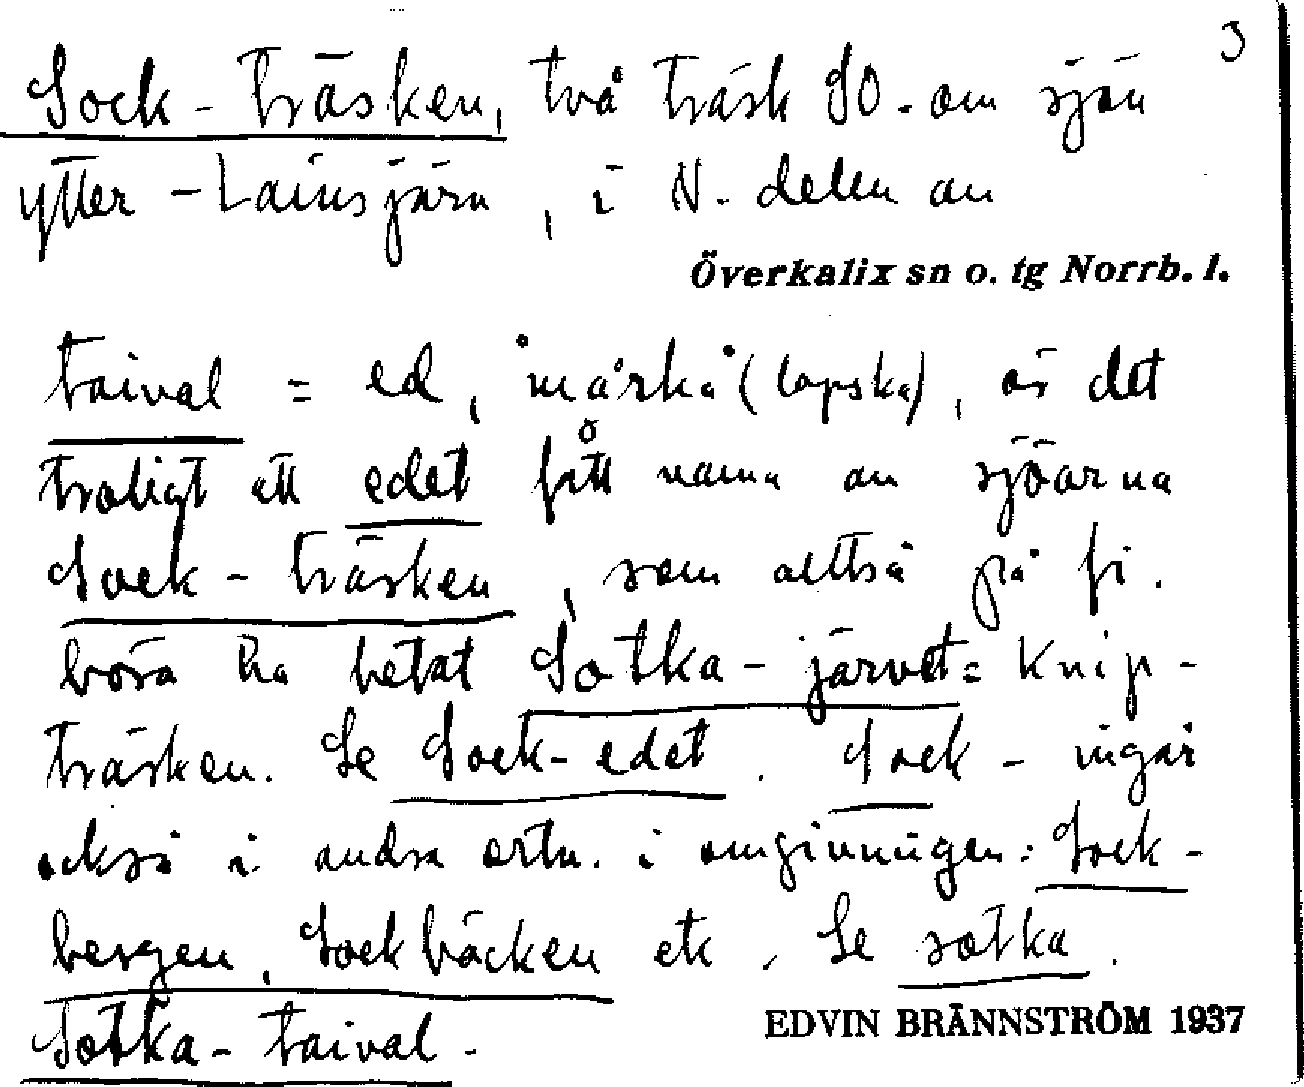 3
Sock-träsken, två träsk SO. om sjön
ytter-Lainsjärv, i N. delen av
Överkalix sn o. tg Norrb. l.
taival = ed, "mårkå" (lapska), är det
troligt att edet fått namn av sjöarna
Sock-träsken, som alltså på fi.
böra ha hetat Sotka-järvet = Knip-
träsken. Se Sock-edet. Sock- ingår
också i andra ortn. i omgivningen: Sock-
bergen, Sockbäcken etc. Se sotka.
Sotka-taival.
EDVIN BRÄNNSTRÖM 1937